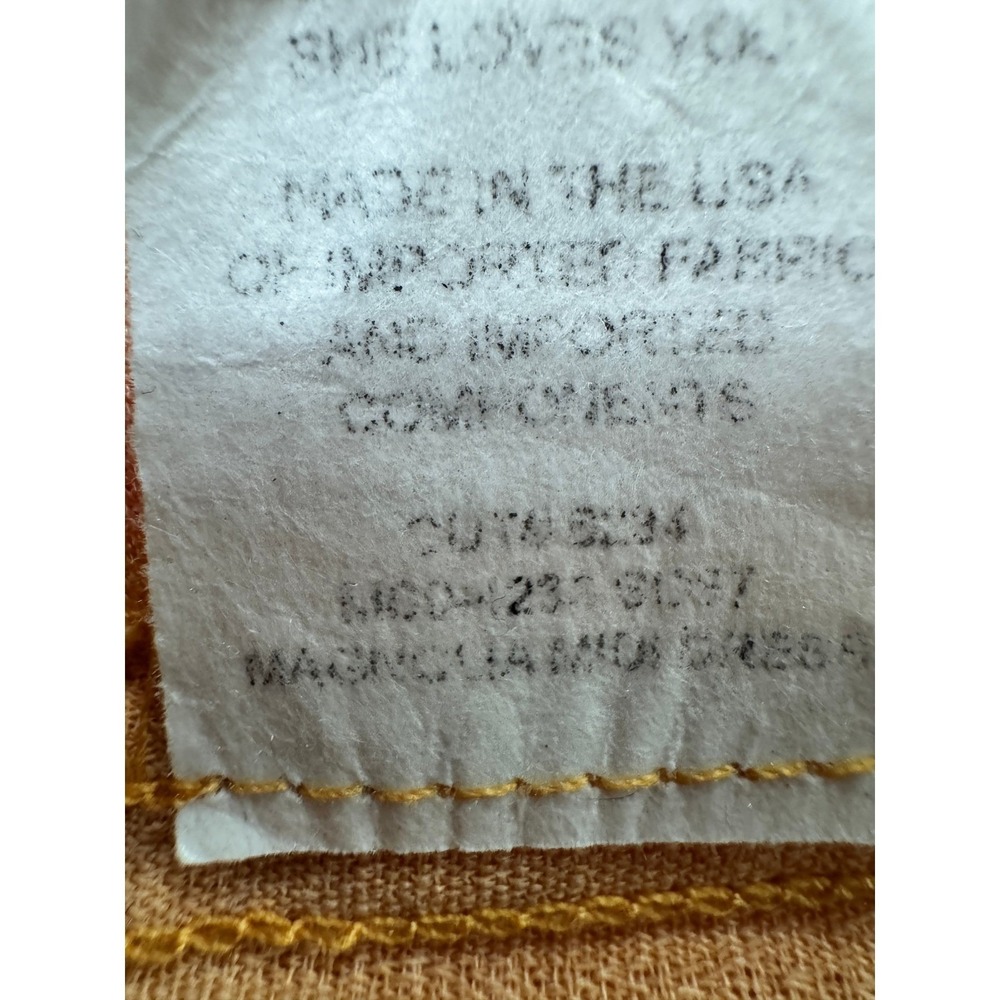 SHE LOVES YOU.
MADE IN THE USA
OF IMPORTED FABRIC
AND IMPORTED
COMPONENTS
CUT# 6294
MAGNOLIA MIDI DRESS